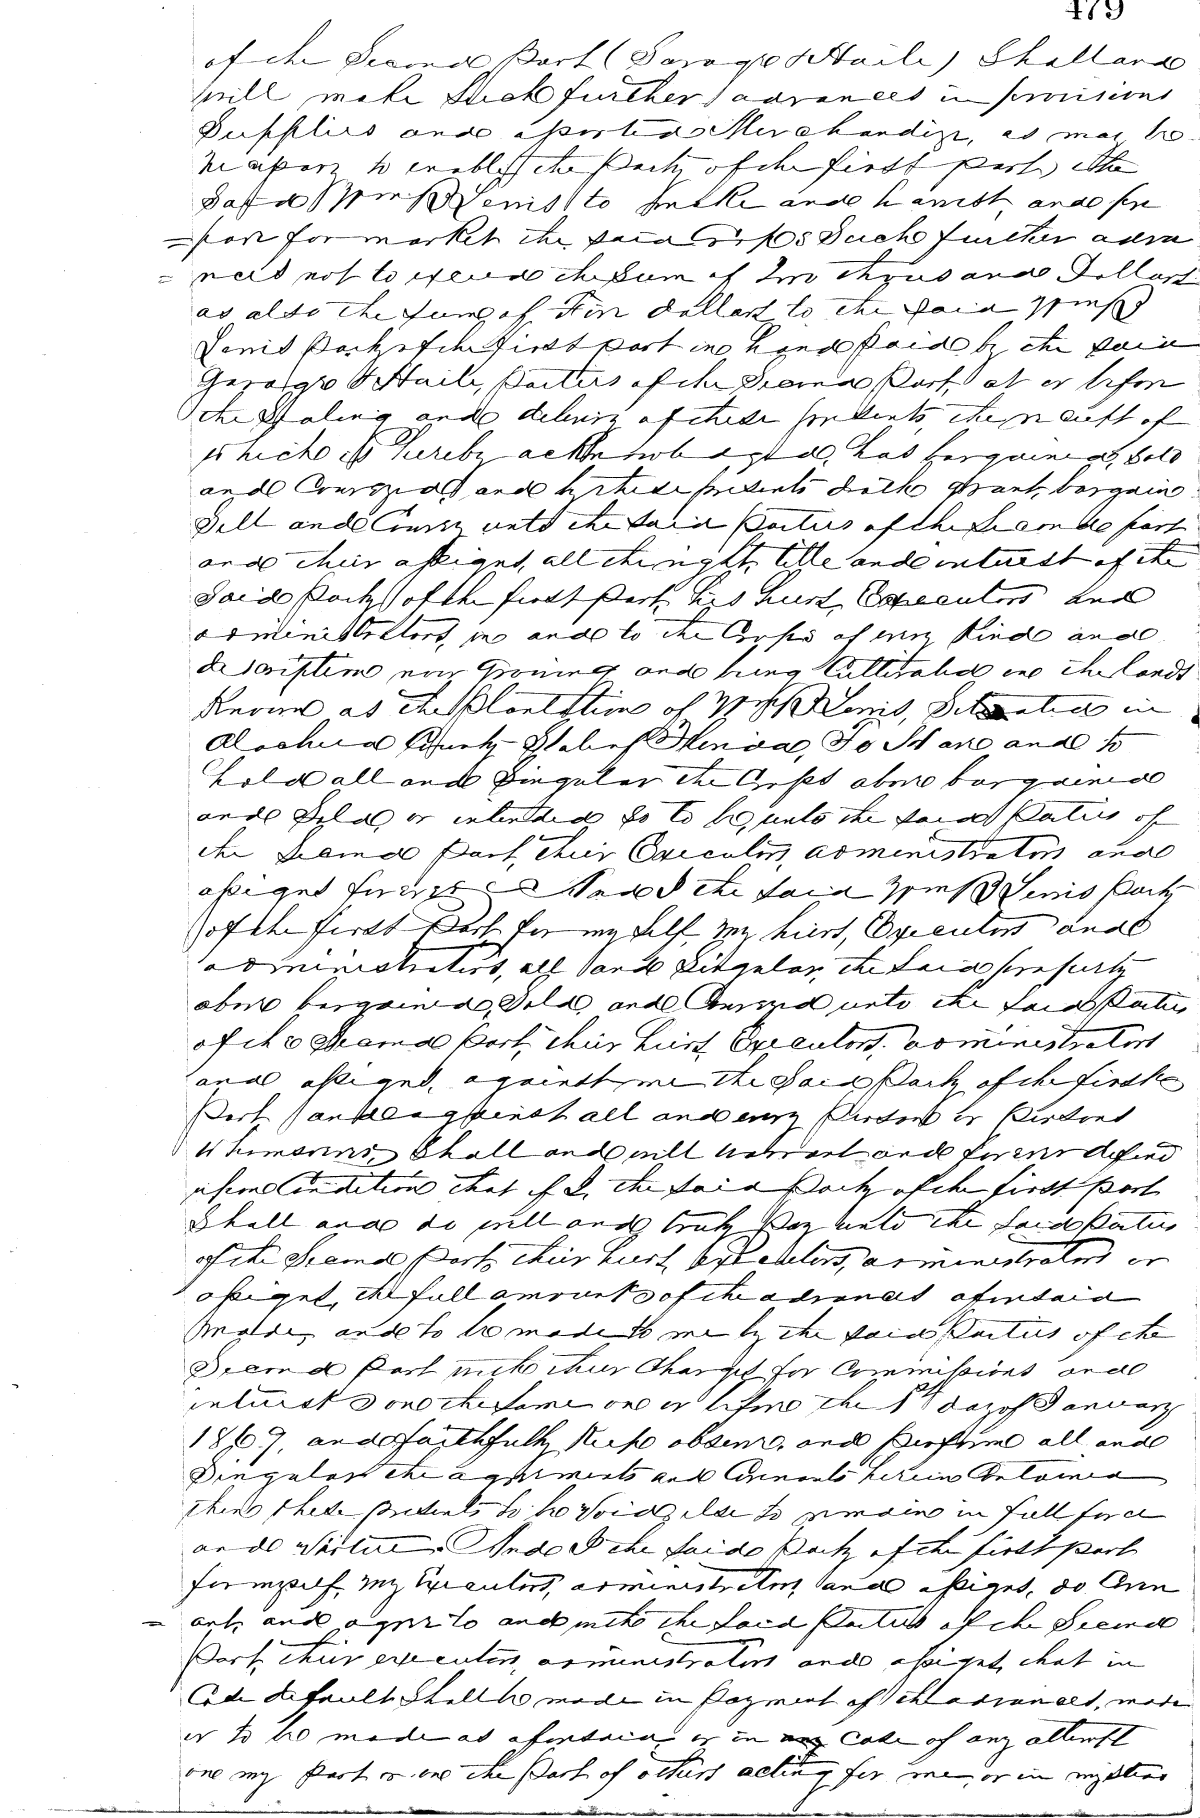 479
of the Second Part (Savage & Haile) Shall and
will make Such further advances in provisions
Supplies and assorted Merchandize, as may be
necessary to enable the Party of the first part, the
Said Wm B Lewis to make and harvest, and pre
=pare for market the said Crops Such further adva
=nces not to exceed the Sum of Two thousand Dollars
as also the Sum of Five dollars to the said Wm B
Lewis Party of the first part in hand Paid by the said
Savage & Haile, Parties of the Second Part, at or before
the Sealing and delivery of these presents, the receipt of
which is hereby acknowledged, has bargained, Sold
and Conveyed, and by these presents doth grant, bargain
Sell and Convey unto the said Parties of the Second part
and their assigns, all the right, title and interest of the
Said Party of the first Part, his heirs, Executors and
administrators, in and to the Crops of every Kind and
description now Growing and being Cultivated on the lands
Known as the Plantation of Wm B Lewis, Situated in
Alachua County State of Florida, To Have and to
hold all and Singular the Crops above bargained
and Sold, or intended So to be, unto the said Parties of
the Second Part, their Executors, administrators and
assigns forever And I the said Wm B Lewis Party
of the first Part for my Self, my heirs, Executors and
administrators, all and Singular, the Said property
above bargained, Sold, and Conveyed unto the Said Parties
of the Second Part, their heirs, Executors, administrators
and assigns, against me the Said Party of the first
Part and against all and every Person or Persons
whomsoever, Shall and will warrant and forever defend
upon Condition that if I, the Said Party of the first part
Shall and do well and truly Pay unto the Said Parties
of the Second Part, their heirs, executors, administrators or
assigns, the full amount of the advances aforesaid
made, and to be made to me by the said Parties of the
Second Part with their Charges for Commissions and
interest on the Same on or before the 1st day of January
1869, and faithfully Keep observe, and Perform all and
Singular the agreements and Covenants herein Contained
then these presents to be Void, else to remain in full force
and Virtue. And I the Said Party of the first part
for myself, my Executors, administrators and assigns, do Coven
=ant, and agree to and with the Said Parties of the Second
Part, their executors, administrators and assigns, that in
Case default Shall be made in Payment of the advances, made
or to be made as aforesaid, or in any Case of any attempt
on my Part or on the Part of others acting for me, or in my Stead